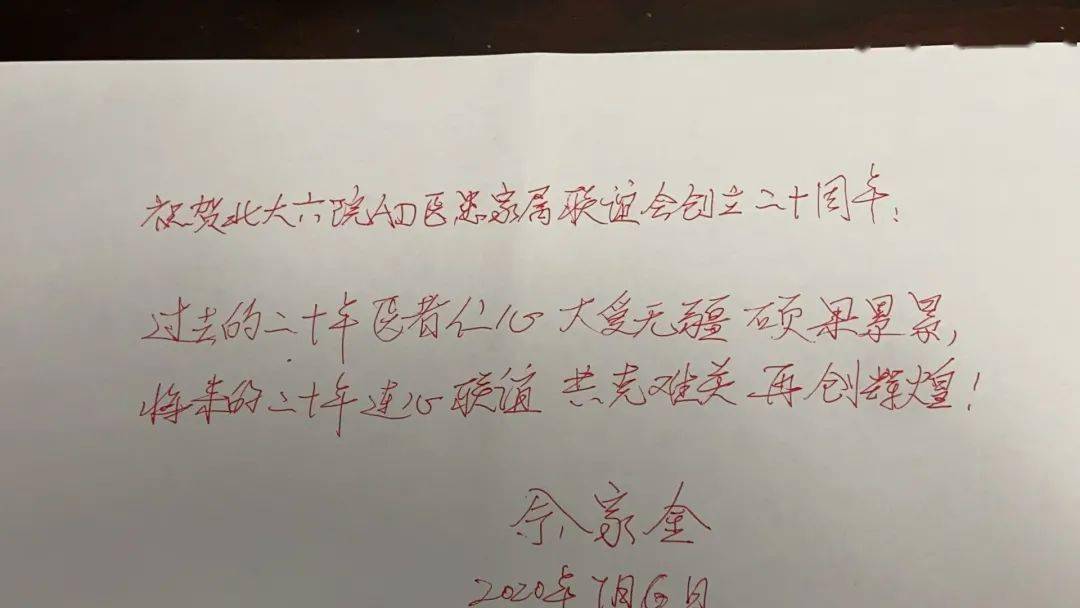 祝贺北大六院AD医患家属联谊会创立二十周年:
过去的二十年医者仁心 大爱无疆 硕果累累,
将来的二十年连心联谊 共克难关 再创辉煌!
余家金
2020年7月6日